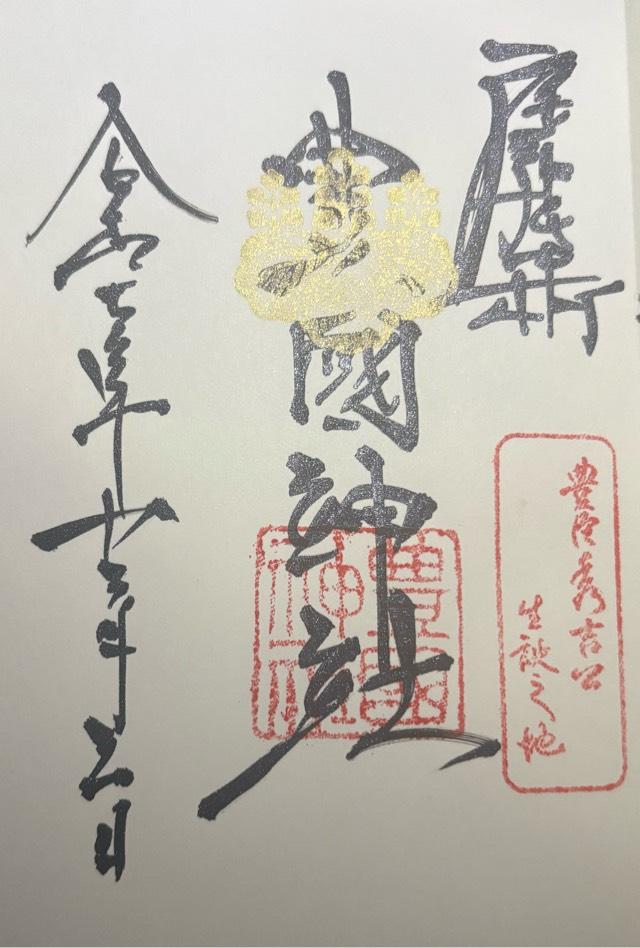 豊國神社
豊國神社
豊臣秀吉公
生誕之地
令和七年十二月二日